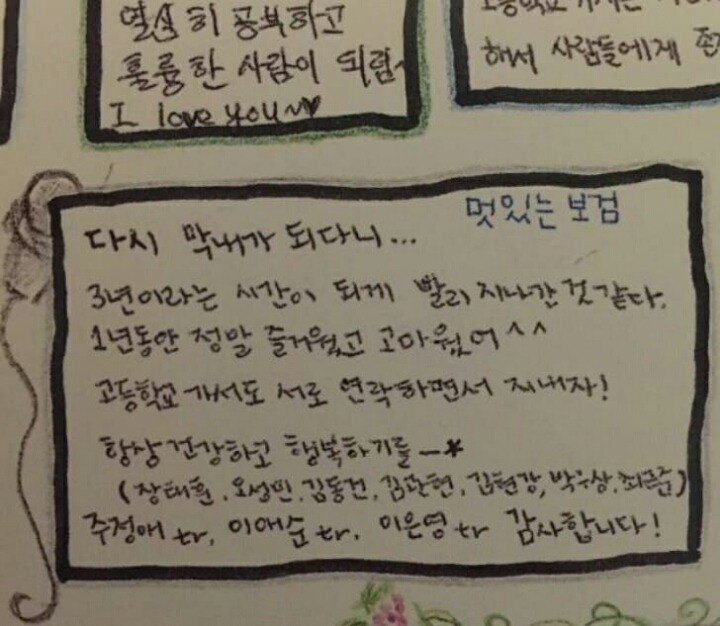 열심히 공부하고
훌륭한 사람이 되렴~
I love you~♥
해서 사람들에게
멋있는 보검
다시 막내가 되다니...
3년이라는 시간이 되게 빨리 지나간 것 같다.
1년동안 정말 즐거웠고 고마웠어 ^^
고등학교 가서도 서로 연락하면서 지내자!
항상 건강하고 행복하기를 —*
(장태훈, 오성민, 김동건, 김관현, 김현강, 박우상, 최문준)
주정애 tr, 이애순 tr, 이은영 tr 감사합니다!